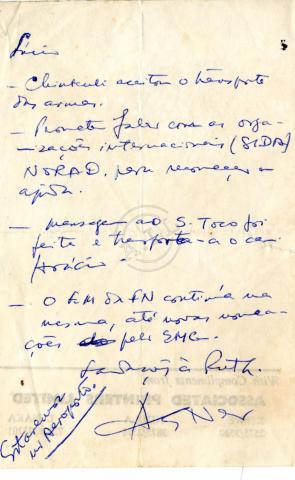 Lúcio
– Chinkuli aceitou o transporte
das armas.
– Prometeu falar com as orga-
nizações internacionais (SIDA,
NORAD. para recomeçar a
ajuda.
– mensagem ao S. Toco foi
feita e transporta-a o cam.
Horácio –
– O EM da FN continua na
mesma, até novas nomea-
ções pelo EMG.
Saudações à Ruth.
Estaremos
no Aeroporto.
With Compliments from
ASSOCIATED PRINTERS LIMITED